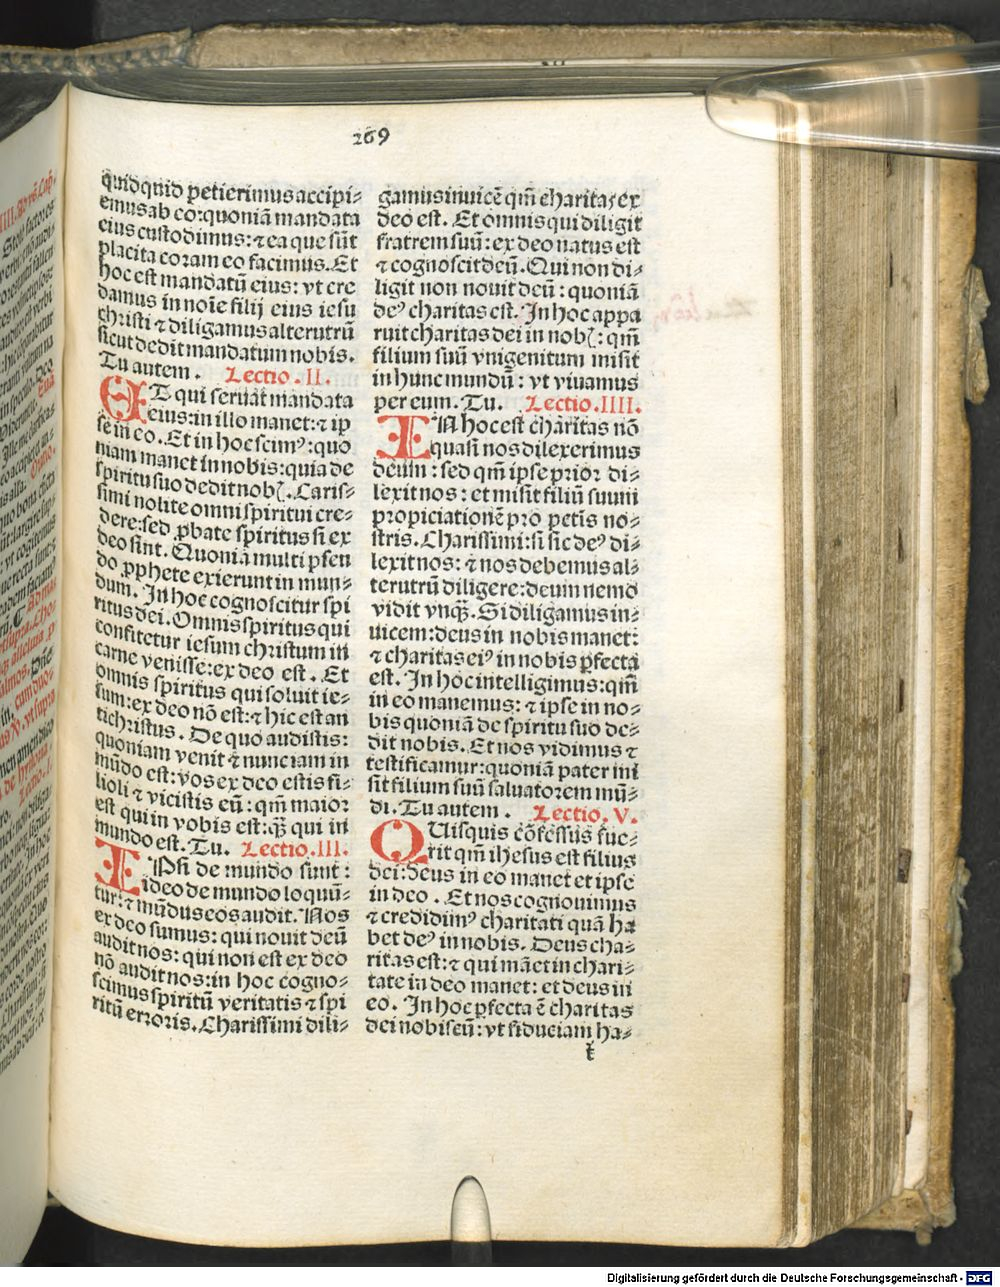 269
quidquid petierimus accipi⸗
emus ab eo: quoniā mandata
eius custodimus: ⁊ ea que sūt
placita coram eo facimus. Et
hoc est mandatū eius: vt cre
damus in noīe filij eius iesu
christi ⁊ diligamus alterutrū
sicut dedit mandatum nobis.
Tu autem . Lectio .II.
ET qui seruāt mandata
eius: in illo manet: ⁊ ip
se in eo. Et in hoc scimꝰ: quo
niam manet in nobis: quia de
spiritu suo dedit nob̄. Caris⸗
simi nolite omni spiritui cre⸗
dere: sed ꝓbate spiritus si ex
deo sint. Quoniā multi pseu
do ꝓphete exierunt in mun⸗
dum. In hoc cognoscitur spi
ritus dei. Omnis spiritus qui
confitetur iesum christum in
carne venisse: ex deo est . Et
omnis spiritus qui soluit ie⸗
sum: ex deo nō est: ⁊ hic est an
tichristus . De quo audistis:
quoniam venit ⁊ nunc iam in
mūdo est: vos ex deo estis fi⸗
lioli ⁊ vicistis eū: qm̄ maior
est qui in vobis est: qȝ qui in
mundo est. Tu. Lectio .III.
IPsi de mundo sunt :
ideo de mundo loquū⸗
tur: ⁊ mūdus eos audit. Nos
ex deo sumus: qui nouit deū
audit nos: qui non est ex deo
nō audit nos: in hoc cogno⸗
scimus spiritū veritatis ⁊ spi
ritū erroris. Charissimi dili⸗
gamus inuicē qm̄ charitas ex
deo est. Et omnis qui diligit
fratrem suū: ex deo natus est
⁊ cognoscit deū. Qui non di⸗
ligit non nouit deū : quoniā
deꝰ charitas est. In hoc appa
ruit charitas dei in nob̄: qm̄
filium suū vnigenitum misit
in hunc mundū : vt viuamus
per eum. Tu. Lectio .IIII.
IN hoc est charitas nō
quasi nos dilexerimus
deum : sed qm̄ ipse prior di⸗
lexit nos : et misit filiū suum
propiciationē pro petīs no⸗
stris. Charissimi: si sic deꝰ di⸗
lexit nos: ⁊ nos debemus al⸗
terutrū diligere: deum nemo
vidit vnqȝ. Si diligamus in⸗
uicem: deus in nobis manet:
⁊ charitas eiꝰ in nobis ꝑfecta
est. In hoc intelligimus: qm̄
in eo manemus: ⁊ ipse in no⸗
bis quoniā de spiritu suo de⸗
dit nobis. Et nos vidimus ⁊
testificamur: quoniā pater mi
sit filium suū saluatorem mū⸗
di. Tu autem . Lectio. V.
QUisquis cōfessus fue⸗
rit qm̄ ihesus est filius
dei: deus in eo manet et ipse
in deo . Et nos cognouimus
⁊ credidimꝰ charitati quā ha
bet deꝰ in nobis. Deus cha⸗
ritas est: ⁊ qui māet in chari⸗
tate in deo manet: et deus in
eo. In hoc ꝑfecta ē charitas
dei nobiscū: vt fiduciam ha⸗
Digitalisierung gefördert durch die Deutsche Forschungsgemeinschaft - DFG